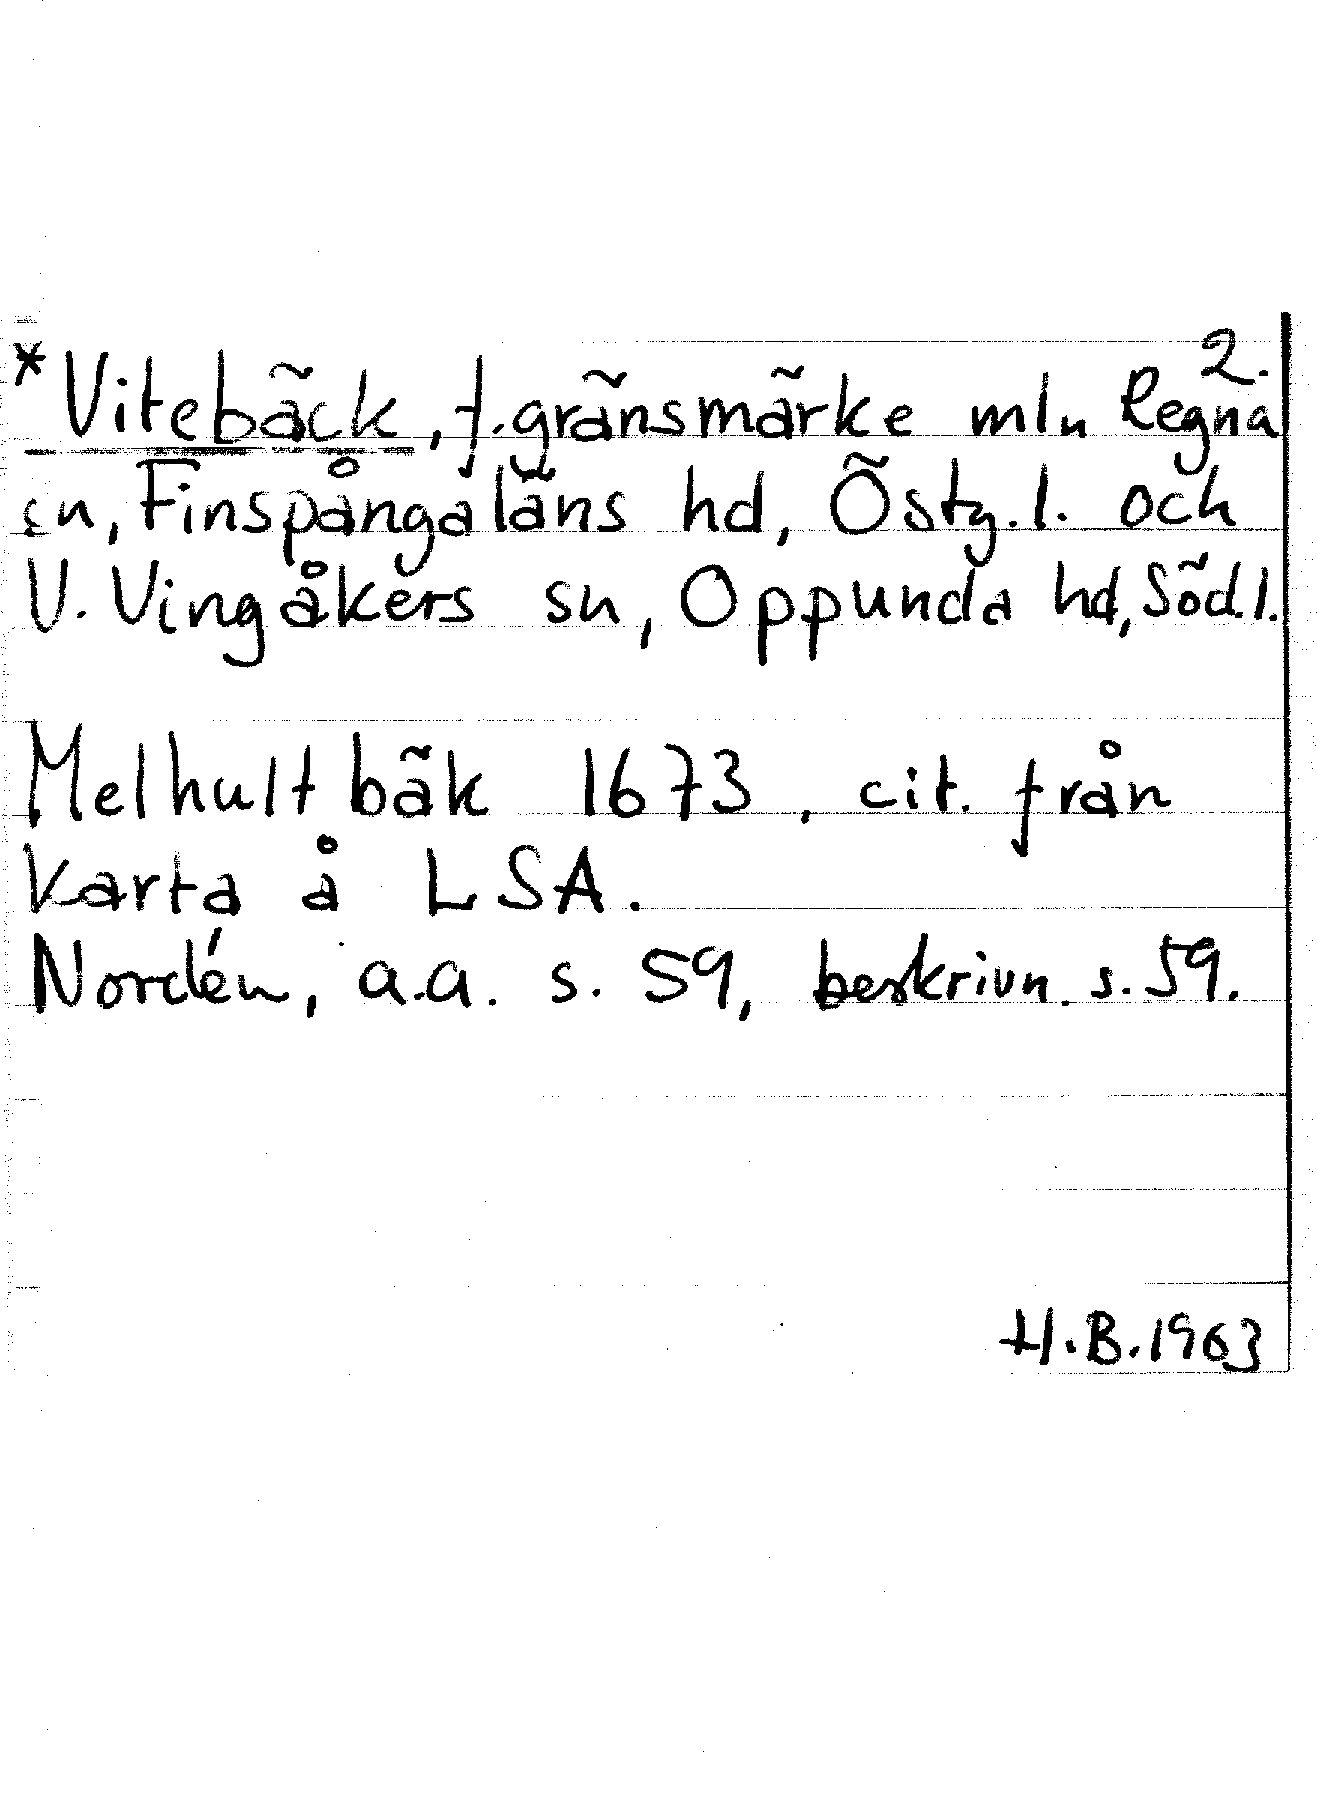 2.
*Vitebäck, f. gränsmärke mln Regna
sn, Finspångaläns hd, Östg. l. och
V. Vingåkers sn, Oppunda hd, Söd. l.
Melhult bäk 1673, cit. från
Karta å LSA.
Nordén, a.a. s. 59, beskrivn. s. 59.
H.B. 1963